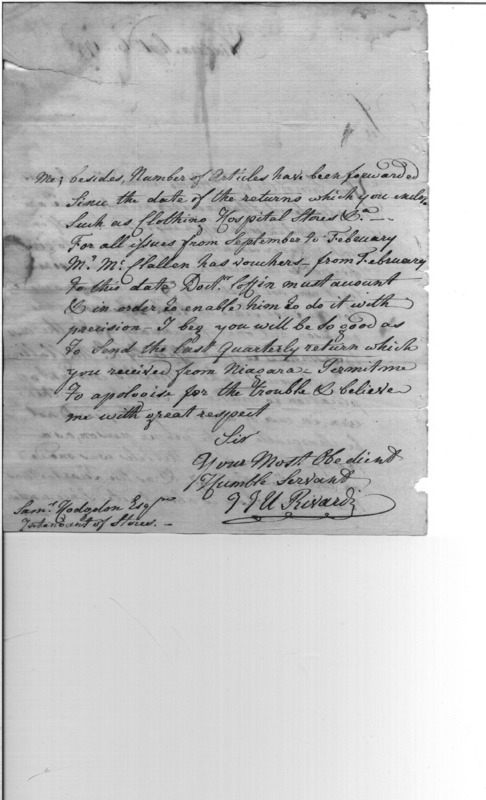 me; besides, Number of Articles have been forwarded
Since the date of the returns which you enclose
Such as Clothing Hospital Stores &ca. —
For all issues from September to Febuary
Mr. McClallen has vouchers — from February
to this date Doctr. Coffin must acount
& in order to enable him to do it with
precision — I beg you will be so good as
to Send the Last Quarterly return which
you received from Niagara — Permit me
to apologise for the trouble & believe
me with great respect
Sir
Your Most Obedient
Humble Servant
J J U Rivardi
Saml. Hodgdon Esqr.
Intendant of Stores. —